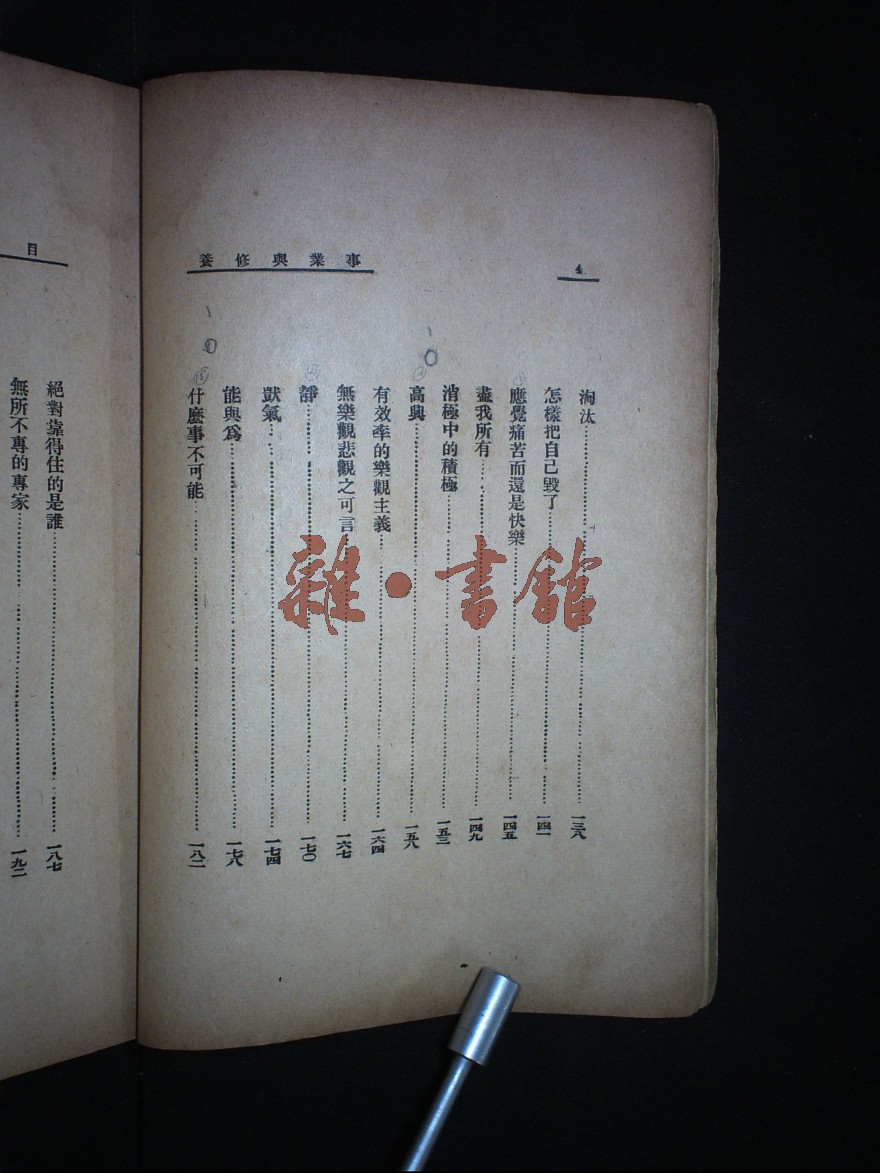 事業與修養
4
淘汰 一三八
怎樣把自己毀了 一四一
應覺痛苦而還是快樂 一四五
盡我所有 一四九
消極中的積極 一五三
高興 一五八
有效率的樂觀主義 一六四
無樂觀悲觀之可言 一六七
靜 一七〇
獃氣 一七四
能與為 一七八
什麼事不可能 一八二
目
絕對靠得住的是誰 一八七
無所不專的專家 一九二
雜·書館